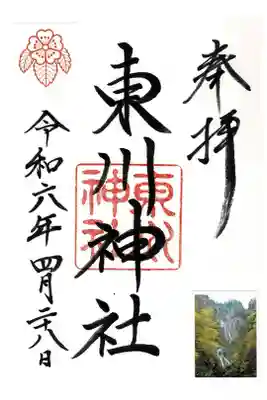 奉拝
東川神社
東川
神社
令和六年四月二十八日